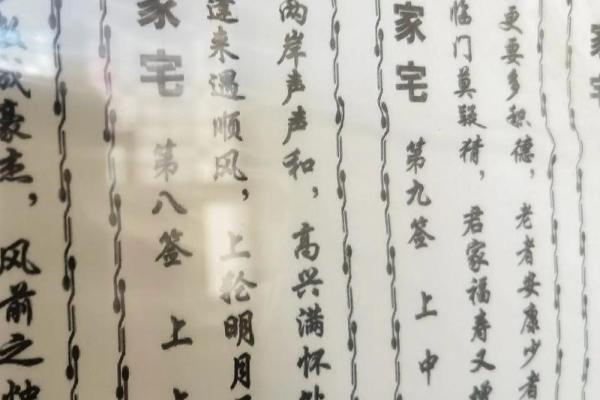 家宅
更要多积德，老者安康少者
临门莫疑猜，君家福寿又增
家宅 第九签 上中
两岸声声和，高兴满怀
来遇顺风，上轮明月
家宅 第八签 上上
成豪杰，风前之烛